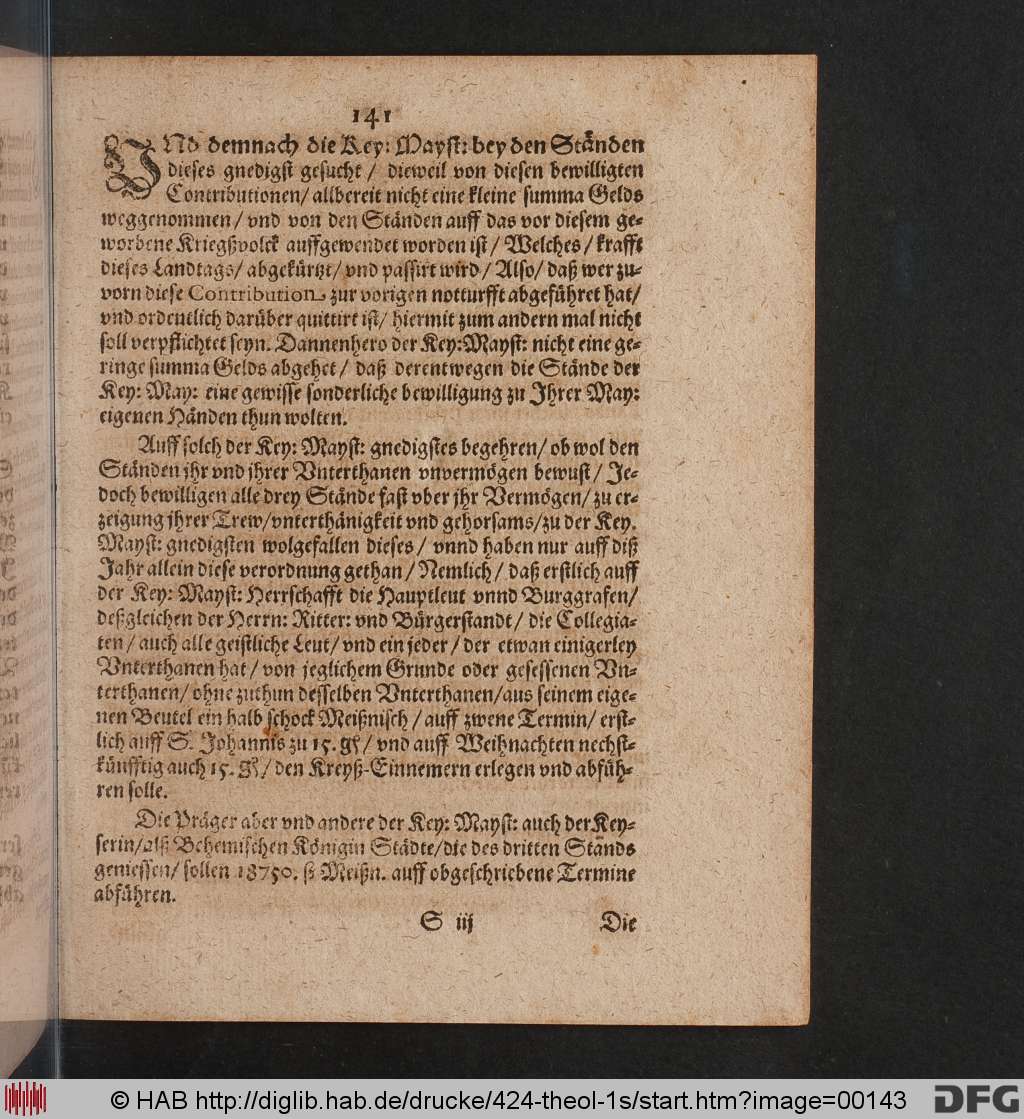 141
VNd demnach die Key: Mayst: bey den Ständen
dieses gnedigst gesucht / dieweil von diesen bewilligten
Contributionen/ allbereit nicht eine kleine summa Gelds
weggenommen/ vnd von den Ständen auff das vor diesem ge-
worbene Kriegßvolck auffgewendet worden ist/ Welches/ krafft
dieses Landtags/ abgekürtzt/ vnd passirt wird/ Also/ daß wer zu-
vorn diese Contribution, zur vorigen notturfft abgeführet hat/
vnd ordentlich darüber quittirt ist/ hiermit zum andern mal nicht
soll verpflichtet seyn. Dannenhero der Key:Mayst: nicht eine ge-
ringe summa Gelds abgehet/ daß derentwegen die Stände der
Key: May: eine gewisse sonderliche bewilligung zu Ihrer May:
eigenen Händen thun wolten.
Auff solch der Key: Mayst: gnedigstes begehren/ ob wol den
Ständen jhr vnd jhrer Vnterthanen vnvermögen bewust/ Je-
doch bewilligen alle drey Stände fast vber jhr Vermögen/ zu er-
zeigung jhrer Trew/vnterthänigkeit vnd gehorsams/zu der Key.
Mayst: gnedigsten wolgefallen dieses/ vnnd haben nur auff diß
Jahr allein diese verordnung gethan/ Nemlich/ daß erstlich auff
der Key: Mayst: Herrschafft die Hauptleut vnnd Burggrafen/
deßgleichen der Herrn: Ritter: vnd Bürgerstandt/ die Collegia-
ten/ auch alle geistliche Leut/ vnd ein jeder/ der etwan einigerley
Vnterthanen hat/ von jeglichem Grunde oder gesessenen Vn-
terthanen/ ohne zuthun desselben Vnterthanen/aus seinem eige-
nen Beutel ein halb schock Meißnisch/ auff zwene Termin/ erst-
lich auff S. Johannis zu 15. gl/ vnd auff Weihnachten nechst-
künfftig auch 15. gl/ den Kreyß-Einnemern erlegen vnd abfüh-
ren solle.
Die Präger aber vnd andere der Key: Mayst: auch der Key-
serin/alß Behemischen Königin Städte/die des dritten Stands
geniessen/ sollen 18750. ß Meißn. auff obgeschriebene Termine
abführen.
S iij Die
© HAB http://diglib.hab.de/drucke/424-theol-1s/start.htm?image=00143
DFG